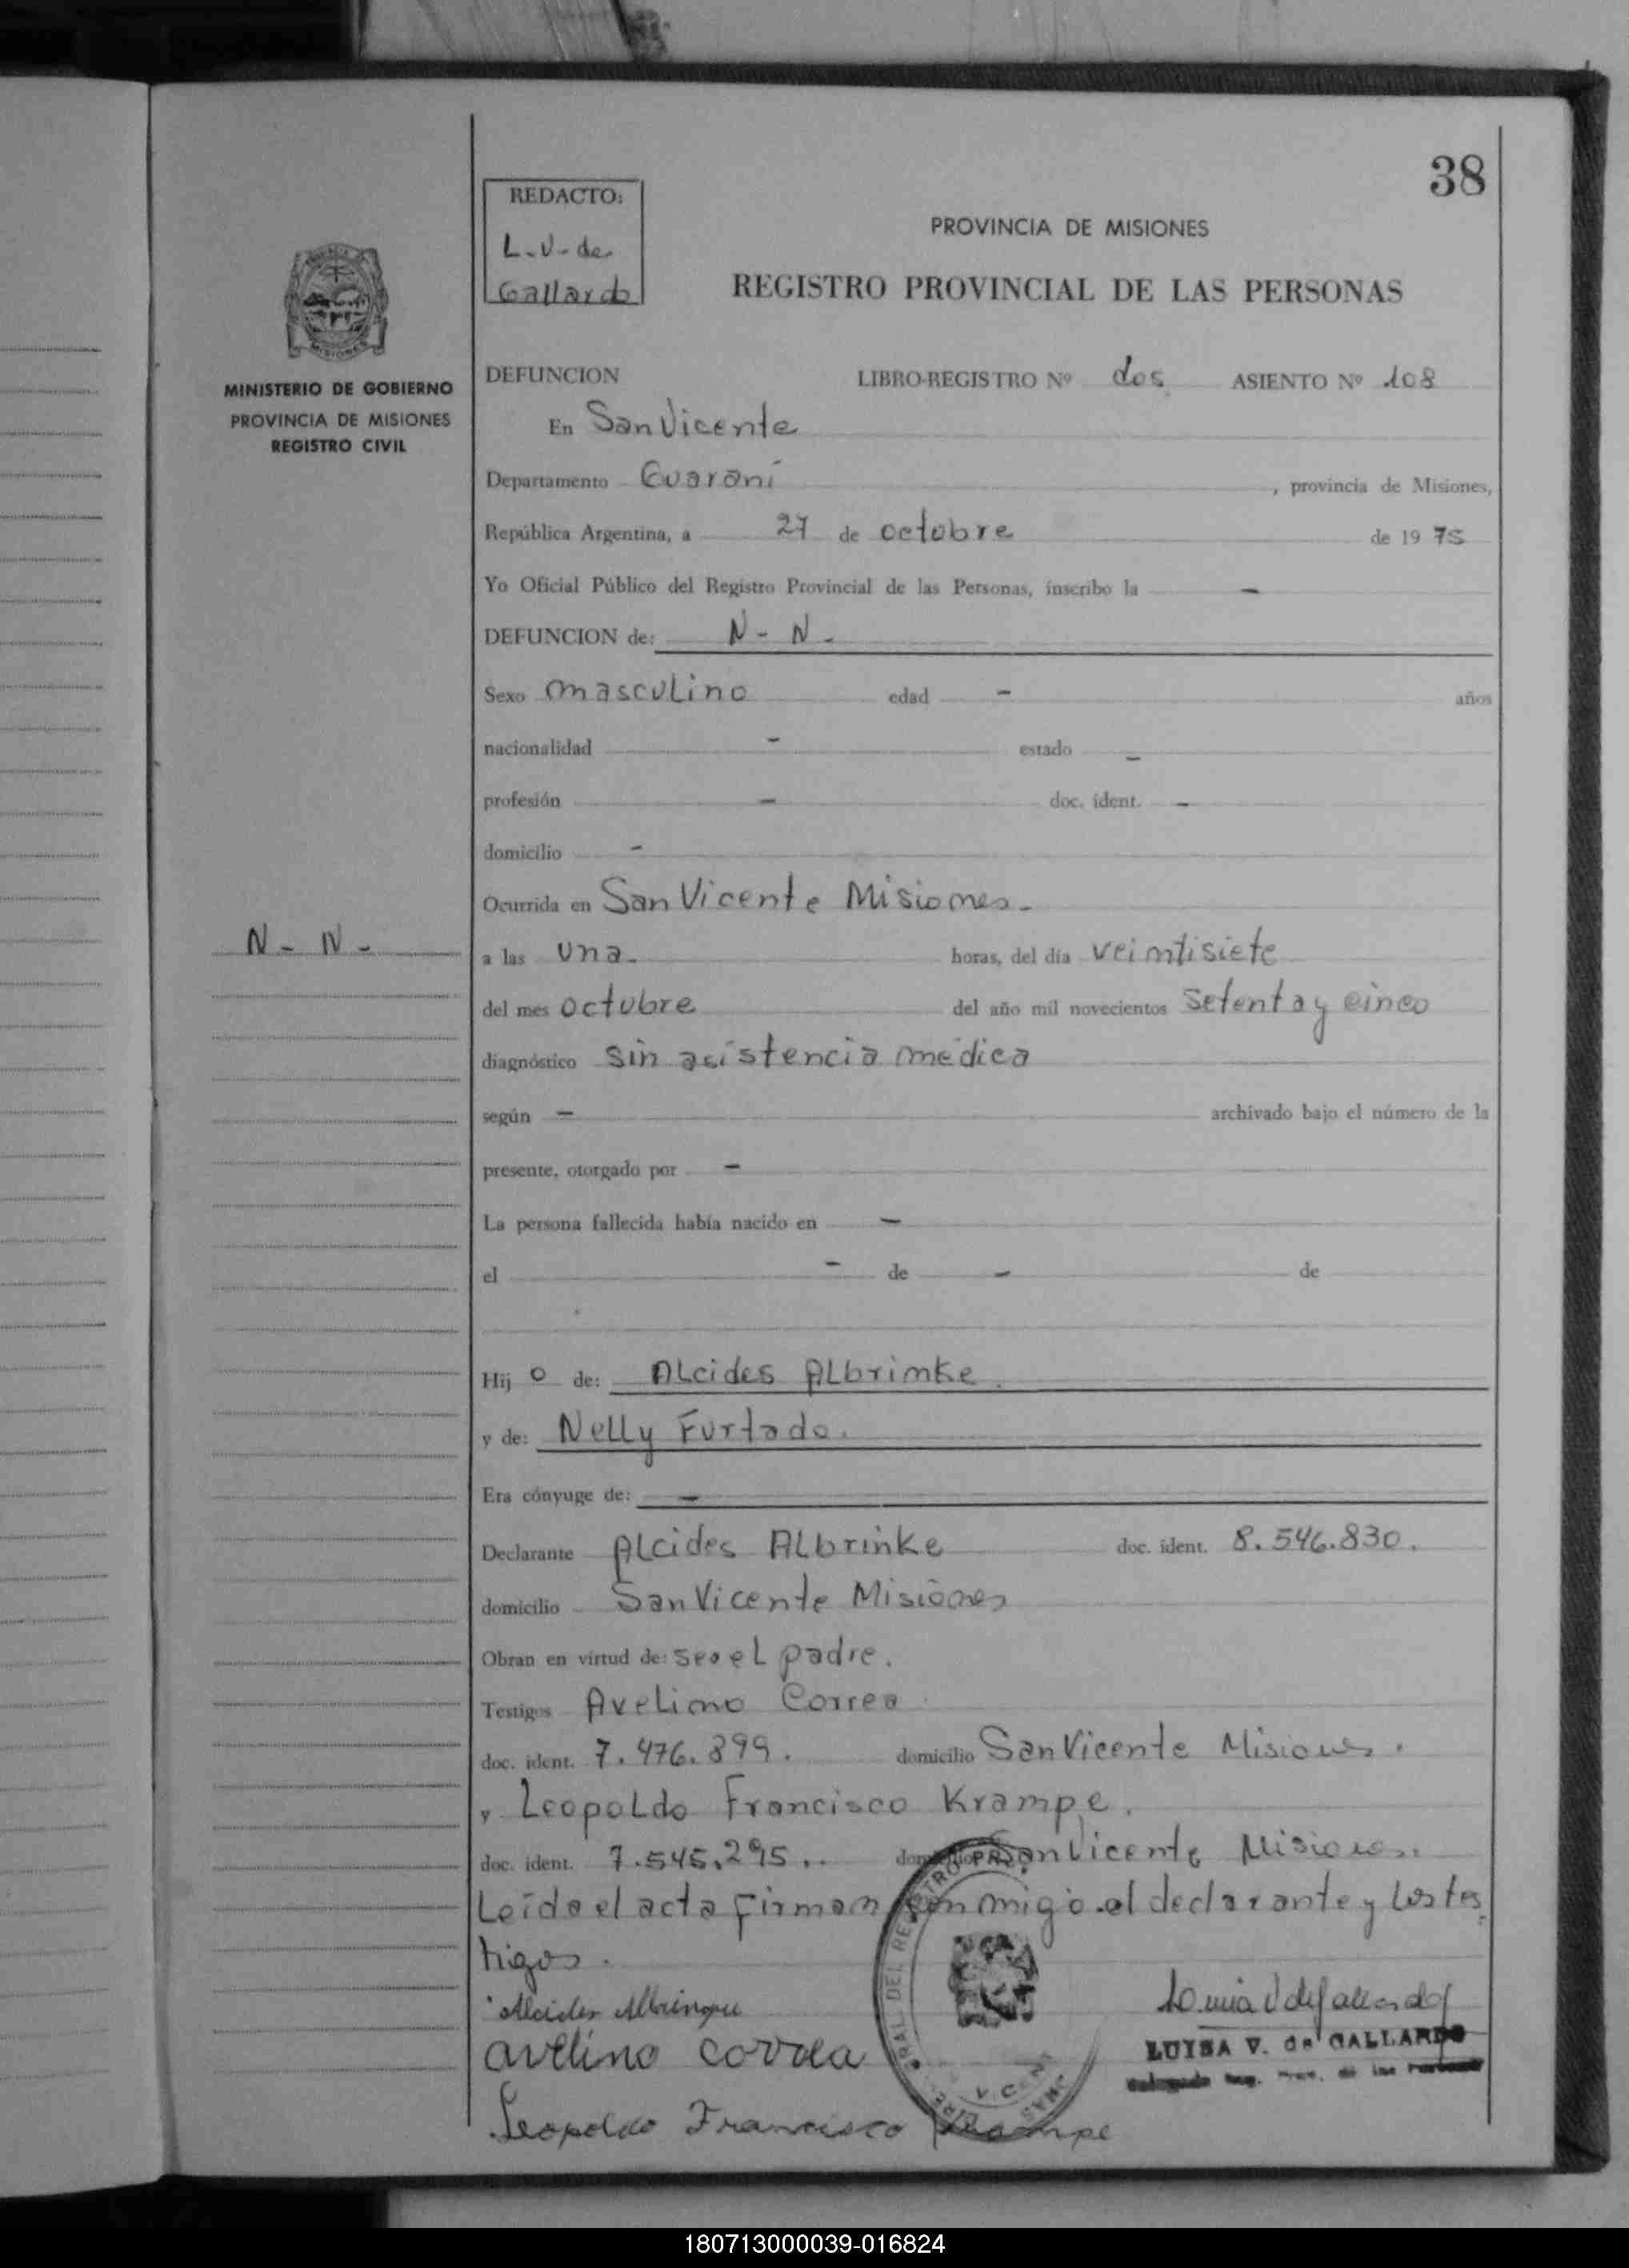 38
REDACTO:
L-V-de
Gallardo
PROVINCIA DE MISIONES
REGISTRO PROVINCIAL DE LAS PERSONAS
MISIONES
MINISTERIO DE GOBIERNO
PROVINCIA DE MISIONES
REGISTRO CIVIL
DEFUNCION LIBRO-REGISTRO Nº dos ASIENTO Nº 108
En San Vicente
Departamento Guaraní, provincia de Misiones,
República Argentina, a 27 de octubre de 1975
Yo Oficial Público del Registro Provincial de las Personas, inscribo la -
DEFUNCION de: N - N -
Sexo masculino edad - años
nacionalidad - estado -
profesión - doc. ident. -
domicilio -
Ocurrida en San Vicente Misiones -
N - N -
a las una - horas, del día veintisiete
del mes octubre del año mil novecientos setenta y cinco
diagnóstico sin asistencia médica
según - archivado bajo el número de la
presente, otorgado por -
La persona fallecida había nacido en -
el - de - de
Hij o de: Alcides Albrimke
y de: Nelly Furtado.
Era cónyuge de: -
Declarante Alcides Albrinke doc. ident. 8.546.830.
domicilio San Vicente Misiones
Obran en virtud de: ser el padre.
Testigos Avelino Correa
doc. ident. 7.476.899. domicilio San Vicente Misiones.
y Leopoldo Francisco Krampe.
doc. ident. 7.545.295.. domicilio San Vicente Misiones.
Leída el acta firman conmigo el declarante y los tes
tigos.
Alcides Albrinque
avelino correa
Leopoldo Francisco Krampe
LUISA V. de GALLARDO
180713000039-016824